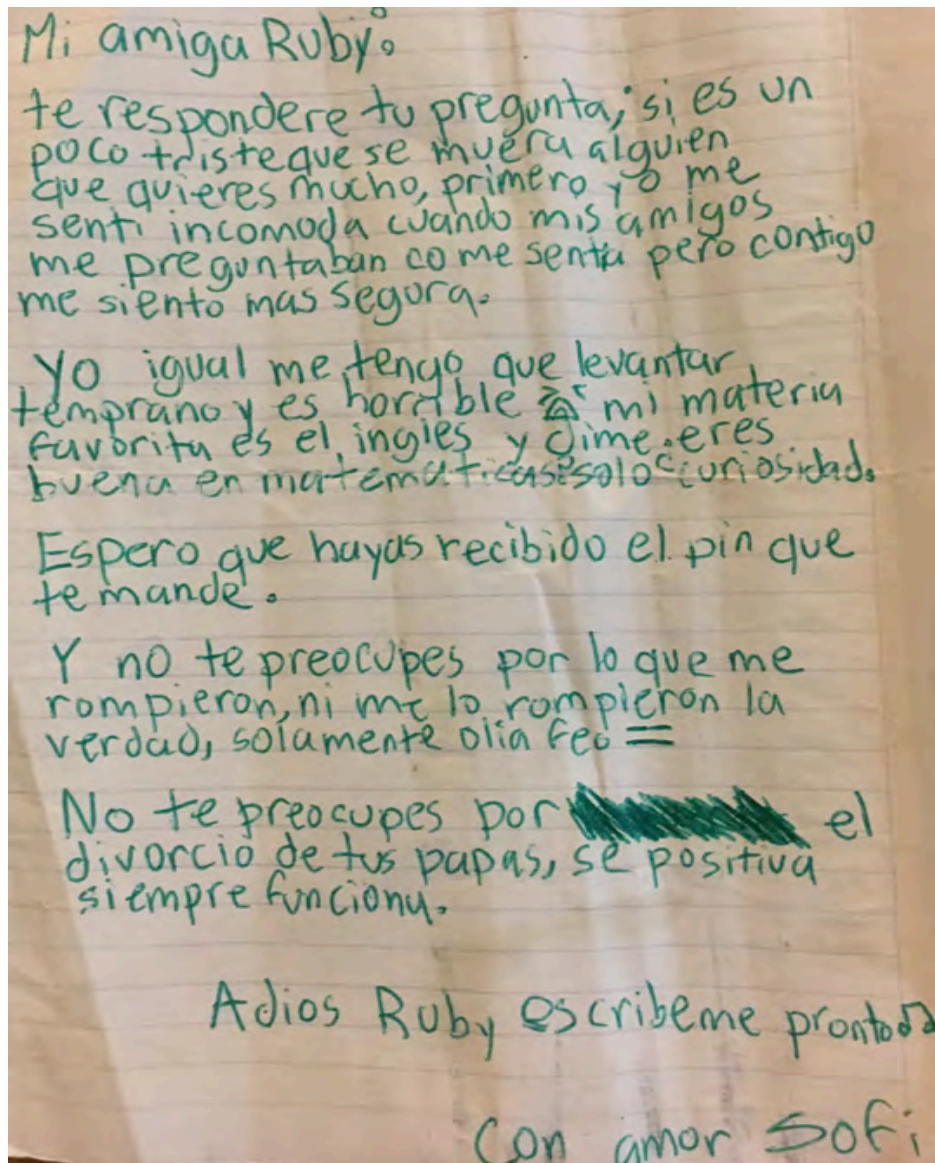 Mi amiga Ruby:
te respondere tu pregunta, si es un
poco triste que se muera alguien
que quieres mucho, primero yo me
senti incomoda cuando mis amigos
me preguntaban co me sentia pero contigo
me siento mas segura.
Yo igual me tengo que levantar
temprano y es horrible mi materia
favorita es el ingles y dime. eres
buena en matematicas? solo curiosidad.
Espero que hayas recibido el pin que
te mande.
Y no te preocupes por lo que me
rompieron, ni me lo rompieron la
verdad, solamente olia feo =
No te preocupes por el
divorcio de tus papas, se positiva
siempre funciona.
Adios Ruby escribeme pronto
Con amor Sofi